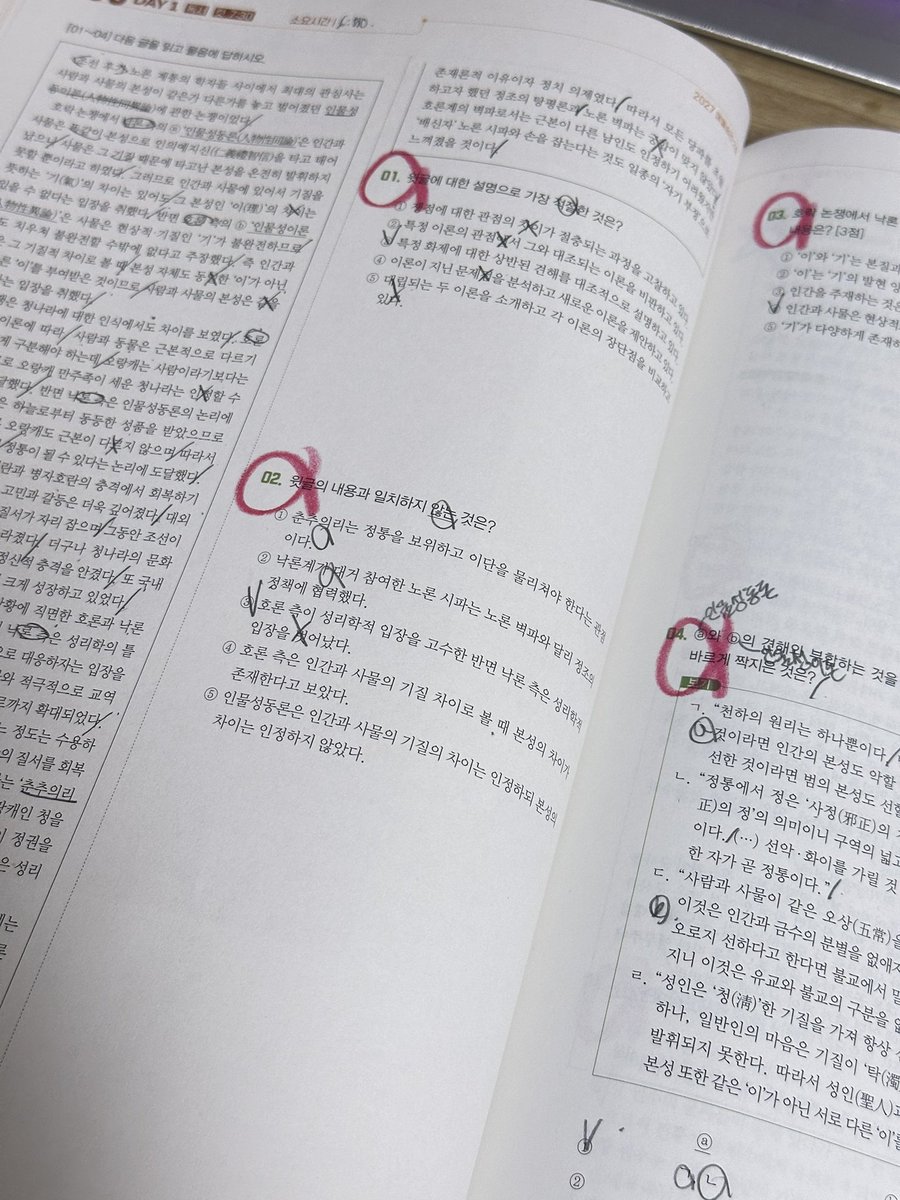 DAY 1
소요시간
[01~04] 다음 글을 읽고 물음에 답하시오.
조선 후기 노론 계통의 학자들 사이에서 최대의 관심사는
사람과 사물의 본성이 같은가 다른가를 놓고 벌어졌던 인물성
동이론(人物性同異論)에 관한 논쟁이었다.
호락 논쟁에서 ⓐ '인물성동론(人物性同論)'은 인간과
사물은 똑같이 본성으로 인의예지신(仁義禮智信)을 타고 태어
났으나 사물은 그 기질 때문에 타고난 본성을 온전히 발휘하지
못할 뿐이라고 하였다. 그러므로 인간과 사물에 있어서 기질을
뜻하는 '기(氣)'의 차이는 있어도 그 본성인 '이(理)'의 차이는
있을 수 없다는 입장을 취했다. 반면 ⓑ '인물성이론
人物性異論)'은 사물은 현상적 기질인 '기'가 불완전하므로
도 치우쳐 불완전할 수밖에 없다고 주장했다. 즉 인간과
은 그 기질적 차이로 볼 때 본성 자체도 동일한 '이'가 아닌
른 '이'를 부여받은 것이므로 사람과 사물의 본성은
는 입장을 취했다.
쟁은 청나라에 대한 인식에서도 차이를 보였다. 호론
이론에 따라 사람과 동물은 근본적으로 다르기
게 구분해야 하는데 오랑캐는 사람이라기보다는
로 오랑캐 만주족이 세운 청나라는 인정할 수
달했다. 반면 낙론 측은 인물성동론의 논리에
은 하늘로부터 동등한 성품을 받았으므로
오랑캐도 근본이 다르지 않으며 따라서
정통이 될 수 있다는 논리에 도달했다.
란과 병자호란의 충격에서 회복하기
고민과 갈등은 더욱 깊어졌다. 대외
질서가 자리 잡으며 그동안 조선이
라졌다. 더구나 청나라의 문화
정신적 충격을 안겼다. 또 국내
크게 성장하고 있었다.
상황에 직면한 호론과 낙론
낙론 측은 성리학의 틀
으로 대응하자는 입장을
와 적극적으로 교역
로까지 확대되었다.
는 정도는 수용하
의 질서를 회복
는 '춘추의리
랑캐인 청을
이 정권을
은 성리
에는
론
존재론적 이유이자 정치 의제였다. 따라서 모든 당파를
하고자 했던 정조의 탕평론과 노론 벽파는
호론계의 벽파로서는 근본이 다른 남인도 인정하기 어려웠지만
'배신자' 노론 시파와 손을 잡는다는 것도 일종의 자기 부정으로
느껴졌을 것이다.
01. 윗글에 대한 설명으로 가장 적절한 것은?
① 쟁점에 대한 관점의 차이가 절충되는 과정을 고찰하고 있다.
② 특정 이론의 관점에서 그와 대조되는 이론을 비판하고 있다.
③ 특정 화제에 대한 상반된 견해를 대조적으로 설명하고 있다.
④ 이론이 지닌 문제점을 분석하고 새로운 이론을 제안하고 있다.
⑤ 대립되는 두 이론을 소개하고 각 이론의 장단점을 비교하고
있다.
02. 윗글의 내용과 일치하지 않는 것은?
① 춘추의리는 정통을 보위하고 이단을 물리쳐야 한다는 관점
이다.
② 낙론계가 대거 참여한 노론 시파는 노론 벽파와 달리 정조의
정책에 협력했다.
③ 호론 측이 성리학적 입장을 고수한 반면 낙론 측은 성리학적
입장을 벗어났다.
④ 호론 측은 인간과 사물의 기질 차이로 볼 때 본성의 차이가
존재한다고 보았다.
⑤ 인물성동론은 인간과 사물의 기질의 차이는 인정하되 본성의
차이는 인정하지 않았다.
03. 호락 논쟁에서 낙론
내용은? [3점]
① '이'와 '기'는 본질과
② '이'는 '기'의 발현 양
③ 인간을 주재하는 것은
④ 인간과 사물은 현상적
⑤ '기'가 다양하게 존재하
인물성동론
04. ⓐ와 ⓑ의 견해와 부합하는 것을
바르게 짝지은 것은?
보기
ㄱ. "천하의 원리는 하나뿐이다.
것이라면 인간의 본성도 악할
선한 것이라면 범의 본성도 선할
ㄴ. "정통에서 정은 '사정(邪正)의
正)의 정'의 의미이니 구역의 넓고
이다. (…) 선악·화이를 가릴 것
한 자가 곧 정통이다."
ㄷ. "사람과 사물이 같은 오상(五常)을
이것은 인간과 금수의 분별을 없애자
오로지 선하다고 한다면 불교에서 말
지니 이것은 유교와 불교의 구분을 없
ㄹ. "성인은 '청(淸)'한 기질을 가져 항상
하나, 일반인의 마음은 기질이 '탁(濁
발휘되지 못한다. 따라서 성인(聖人)과
본성 또한 같은 '이'가 아닌 서로 다른 '이'를
ⓐ
①
② ㄱ, ㄴ